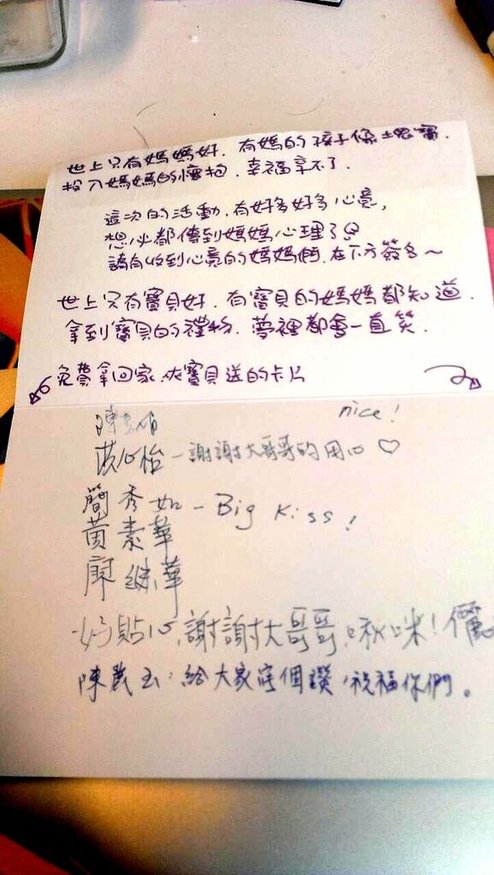 世上只有媽媽好．有媽的孩子像塊寶．
投入媽媽的懷抱．幸福享不了．
這次的活動，有好多好多心意，
想必都傳到媽媽心理了
請有收到心意的媽媽們，在下方簽名～
世上只有寶貝好．有寶貝的媽媽都知道．
拿到寶貝的禮物．夢裡都會一直笑．
免費拿回家，寶貝送的卡片
nice!
洪心怡－謝謝大哥哥的用心♡
簡秀如－Big Kiss!
黃素華
廖繼華
好貼心，謝謝大哥哥，啾咪！
陳義玉：給大家這個讚，祝福你們。